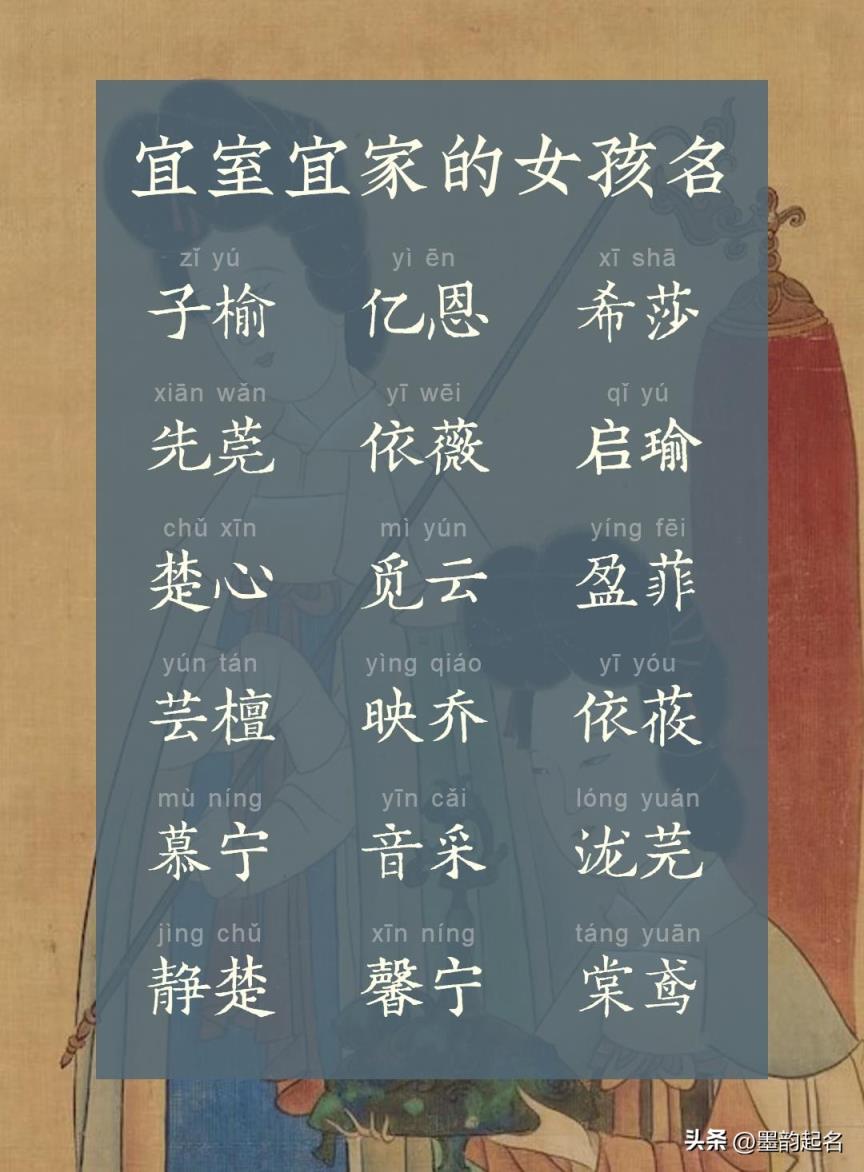 宜室宜家的女孩名
zǐ yú yì ēn xī shā
子榆 亿恩 希莎
xiān wǎn yī wēi qǐ yú
先莞 依薇 启瑜
chǔ xīn mì yún yíng fēi
楚心 觅云 盈菲
yún tán yìng qiáo yī yóu
芸檀 映乔 依莜
mù níng yīn cǎi lóng yuán
慕宁 音采 泷芫
jìng chǔ xīn níng táng yuān
静楚 馨宁 棠鸢
头条 @墨韵起名